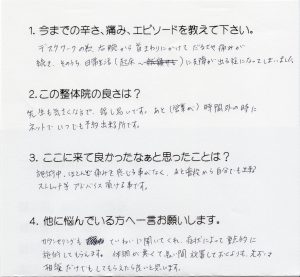 1. 今までの辛さ、痛み、エピソードを教えて下さい。
デスクワークの為、右腕から首まわりにかけて だるさや痛みが
続き、そのうち 日常生活(起床 )に支障が出る様になってしまいました。
2. この整体院の良さは？
先生も気さくな方で、話し易いです。あと(営業の)時間外の時に
ネットで いつでも予約出来る所です。
3. ここに来て良かったなぁと思ったことは？
施術中、ほとんど痛みを感じる事がなく、あと普段から自分でも出来る
ストレッチ等 アドバイス 頂ける事です。
4. 他に悩んでいる方へ一言お願いします。
カウンセリングも ていねいに聞いてくれ、症状によって 重点的に
施術してもらえます。 体調の 悪くて 長い間 放置しておくより、
相談だけでも してもらえたら 良いと思います。